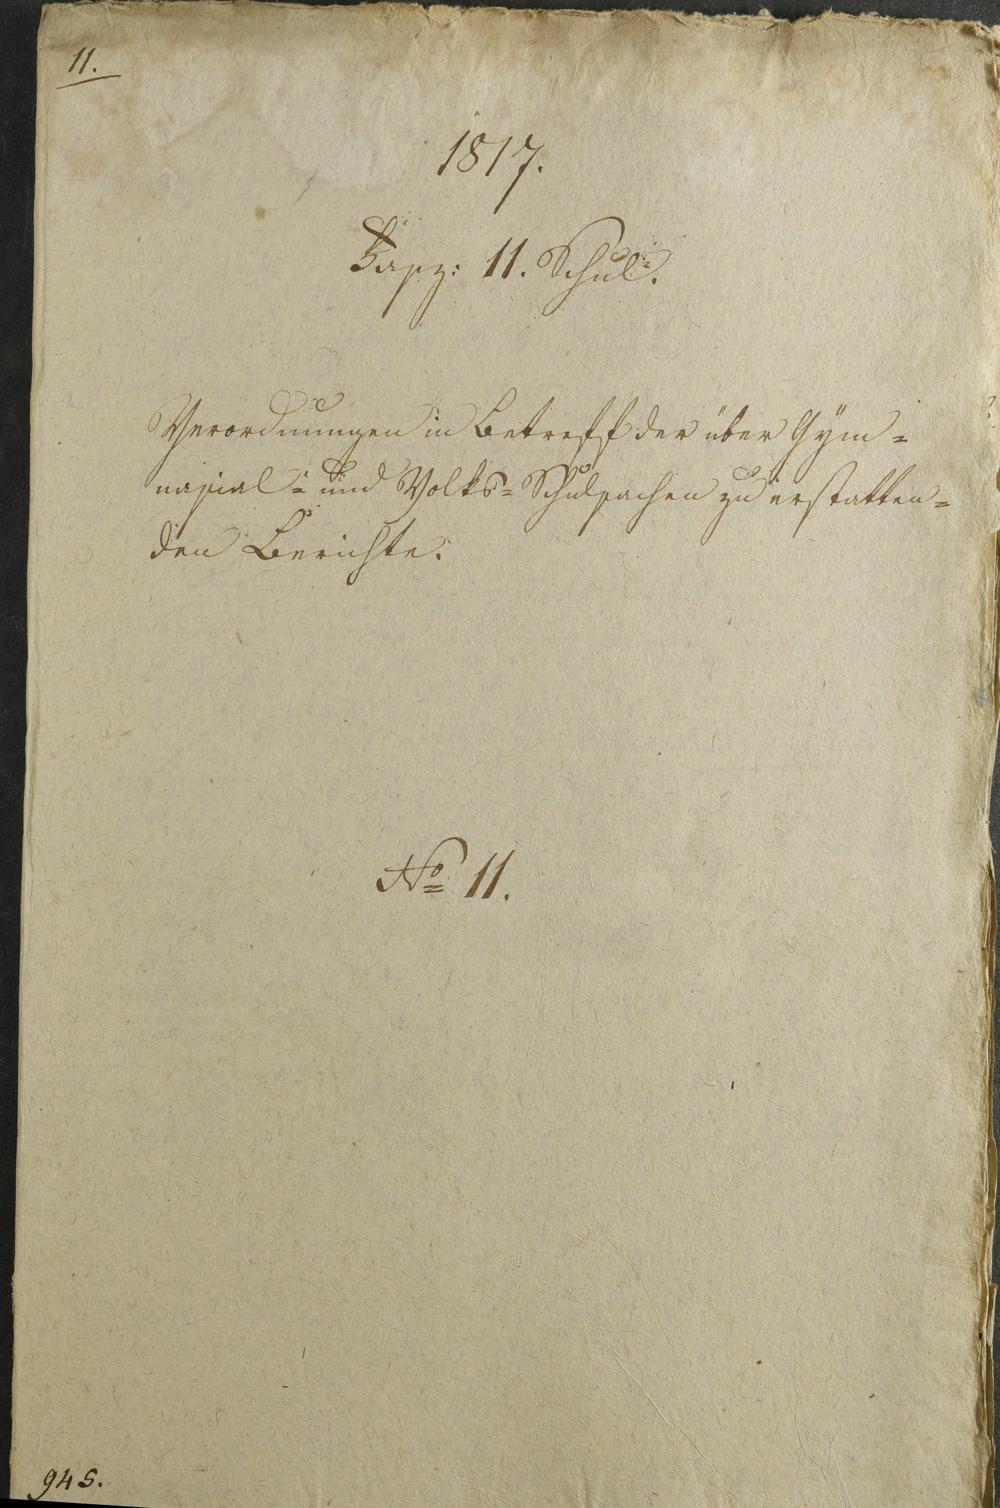 11.
1817.
Fasz: 11. Schul.
Verordnungen in Betreff der über Gÿm=
nasial= und Volks=Schulsachen zu erstatten=
den Berichte.
No 11.
945.